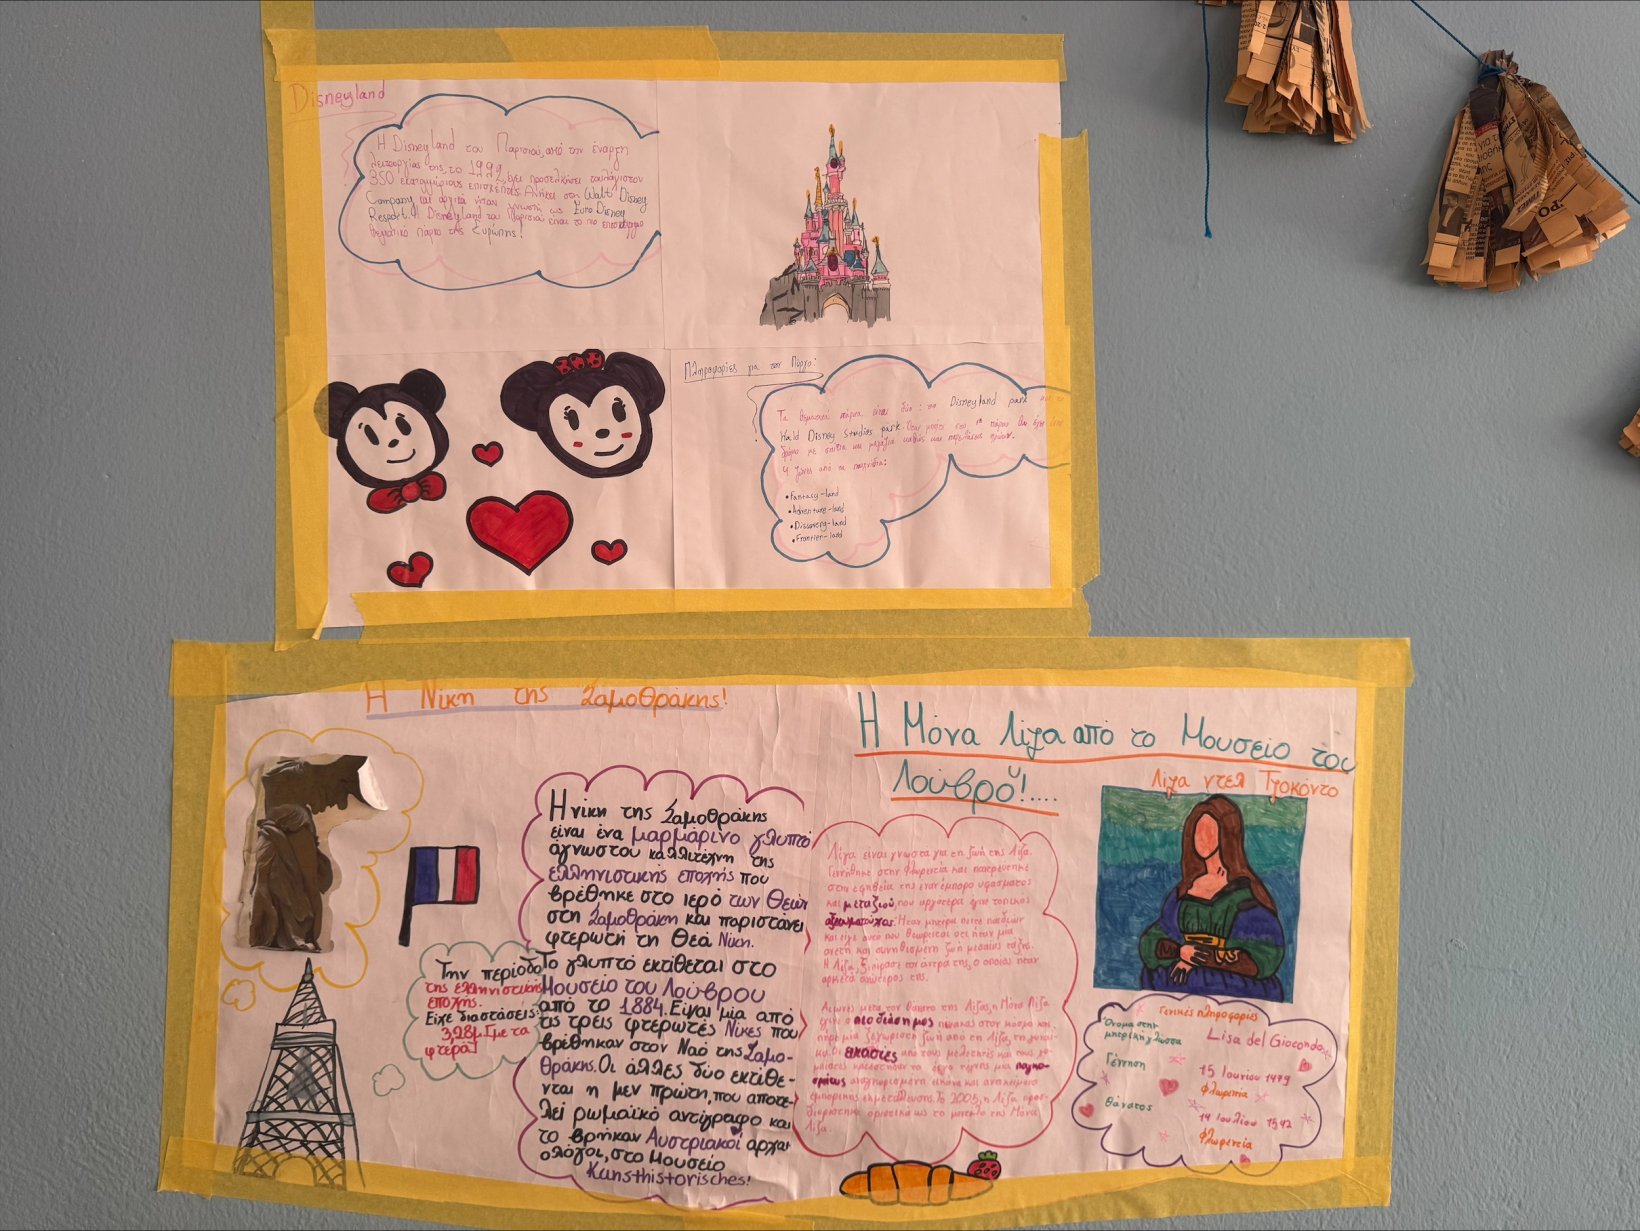 Disneyland
Η Disneyland του Παρισιού, από την έναρξη
λειτουργίας της το 1992, έχει προσελκύσει τουλάχιστον
350 εκατομμύριους επισκέπτες. Ανήκει στη Walt Disney
Company και αρχικά ήταν γνωστή ως Euro Disney
Resport. Η Disneyland του Παρισιού είναι το πιο
θεματικό πάρκο της Ευρώπης!
Πληροφορίες για τον Πύργο:
Τα θεματικά πάρκα είναι δύο: το Disneyland park
Wald Disney Studios park.
δρόμο με σπίτια και μαγαζιά καθώς και
4 ζώνες από τα παιχνίδια:
•Fantasy-land
•Adventure-land
•Discovery-land
•Frontier-land
Η Νίκη της Σαμοθράκης!
Η νίκη της Σαμοθράκης
είναι ένα μαρμάρινο γλυπτό
άγνωστου καλλιτέχνη της
ελληνιστικής εποχής που
βρέθηκε στο ιερό των Θεών
στη Σαμοθράκη και παριστάνει
φτερωτή τη Θεά Νίκη.
Το γλυπτό εκτίθεται στο
Μουσείο του Λούβρου
από το 1884. Είναι μία από
τις τρεις φτερωτές Νίκες που
βρέθηκαν στον Ναό της Σαμο-
θράκης. Οι άλλες δύο εκτίθε-
νται η μεν πρώτη, που αποτε-
λεί ρωμαϊκό αντίγραφο και
το βρήκαν Αυστριακοί αρχαι
ολόγοι, στο Μουσείο
Kunsthistorisches!
Την περίοδο
της ελληνιστικής
εποχής.
Είχε διαστάσεις:
3,28μ. [με τα
φτερά]
Η Μόνα Λίζα από το Μουσείο του
Λούβρου!....
Λίζα ντελ Τζοκόντο
Λίγα είναι γνωστά για τη ζωή της Λίζα.
Γεννήθηκε στην Φλωρεντία και παντρεύτηκε
στην εφηβεία της έναν έμπορο υφάσματος
και μεταξιού, που αργότερα έγινε τοπικός
αξιωματούχος. Ήταν μητέρα πέντε παιδιών
και είχε αυτό που θεωρείται ότι ήταν μια
άνετη και συνηθισμένη ζωή μεσαίας τάξης.
Η Λίζα, ξεπέρασε τον άντρα της, ο οποίος ήταν
αρκετά μεγαλύτερός της.
Αιώνες μετά τον θάνατο της Λίζας, η Μόνα Λίζα
έγινε ο πιο διάσημος πίνακας στον κόσμο και
πήρε μια ξεχωριστή ζωή από τη Λίζα, τη γυναί-
κα. Οι εικασίες από τους μελετητές και τους
κατέστησαν το έργο τέχνης μια παγκο-
σμίως αναγνωρισμένη εικόνα και αντικείμενο
εμπορικής εκμετάλλευσης. Το 2005, η Λίζα προσ-
διορίστηκε οριστικά ως το μοντέλο της Μόνα
Λίζα.
Γενικές πληροφορίες
Όνομα στην
μητρική γλώσσα
Lisa del Giocondo
Γέννηση
15 Ιουνίου 1479
Φλωρεντία
Θάνατος
14 Ιουλίου 1542
Φλωρεντία